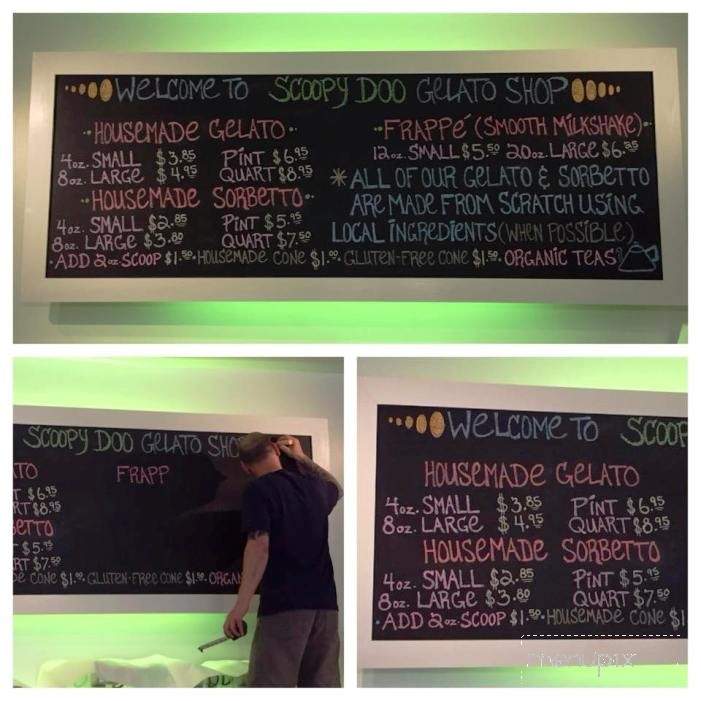 WELCOME TO SCOOPY DOO GELATO SHOP
HOUSEMADE GELATO
4oz. SMALL $3.85 PINT $6.95
8oz. LARGE $4.95 QUART $8.95
HOUSEMADE SORBETTO
4oz. SMALL $2.85 PINT $5.95
8oz. LARGE $3.80 QUART $7.50
FRAPPÉ (SMOOTH MILKSHAKE)
12oz. SMALL $5.50 20oz. LARGE $6.25
*ALL OF OUR GELATO & SORBETTO
ARE MADE FROM SCRATCH USING
LOCAL INGREDIENTS (WHEN POSSIBLE)
•ADD 2oz SCOOP $1.50 •HOUSEMADE CONE $1.00 •GLUTEN-FREE CONE $1.50 •ORGANIC TEAS
SCOOPY DOO GELATO SHO
TO
FRAPP
T $6.95
RT $8.95
BETTO
T $5.95
RT $7.50
DE CONE $1.00 •GLUTEN-FREE CONE $1.50 •ORGAN
WELCOME TO SCOOP
HOUSEMADE GELATO
4oz. SMALL $3.85 PINT $6.95
8oz. LARGE $4.95 QUART $8.95
HOUSEMADE SORBETTO
4oz. SMALL $2.85 PINT $5.95
8oz. LARGE $3.80 QUART $7.50
•ADD 2oz SCOOP $1.50 •HOUSEMADE CONE $1
menupix